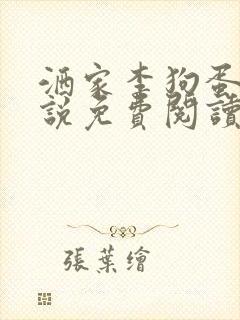 酒家李狗蛋
說免費閱讀
張葉繪